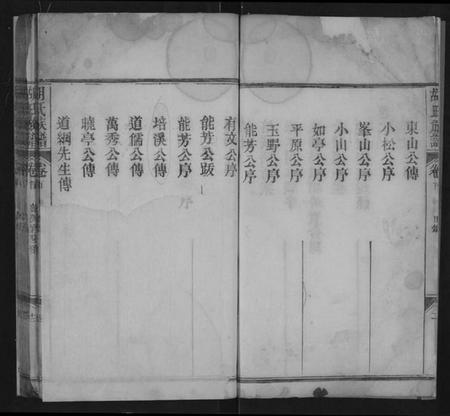 東山公傳
小松公序
峯山公序
小山公序
如亭公序
平原公序
玉野公序
能芳公序
有文公序
能芳公跋
能芳公序
培溪公傳
道儒公傳
萬秀公傳
曉亭公傳
道綱先生傳
胡氏族譜
卷首